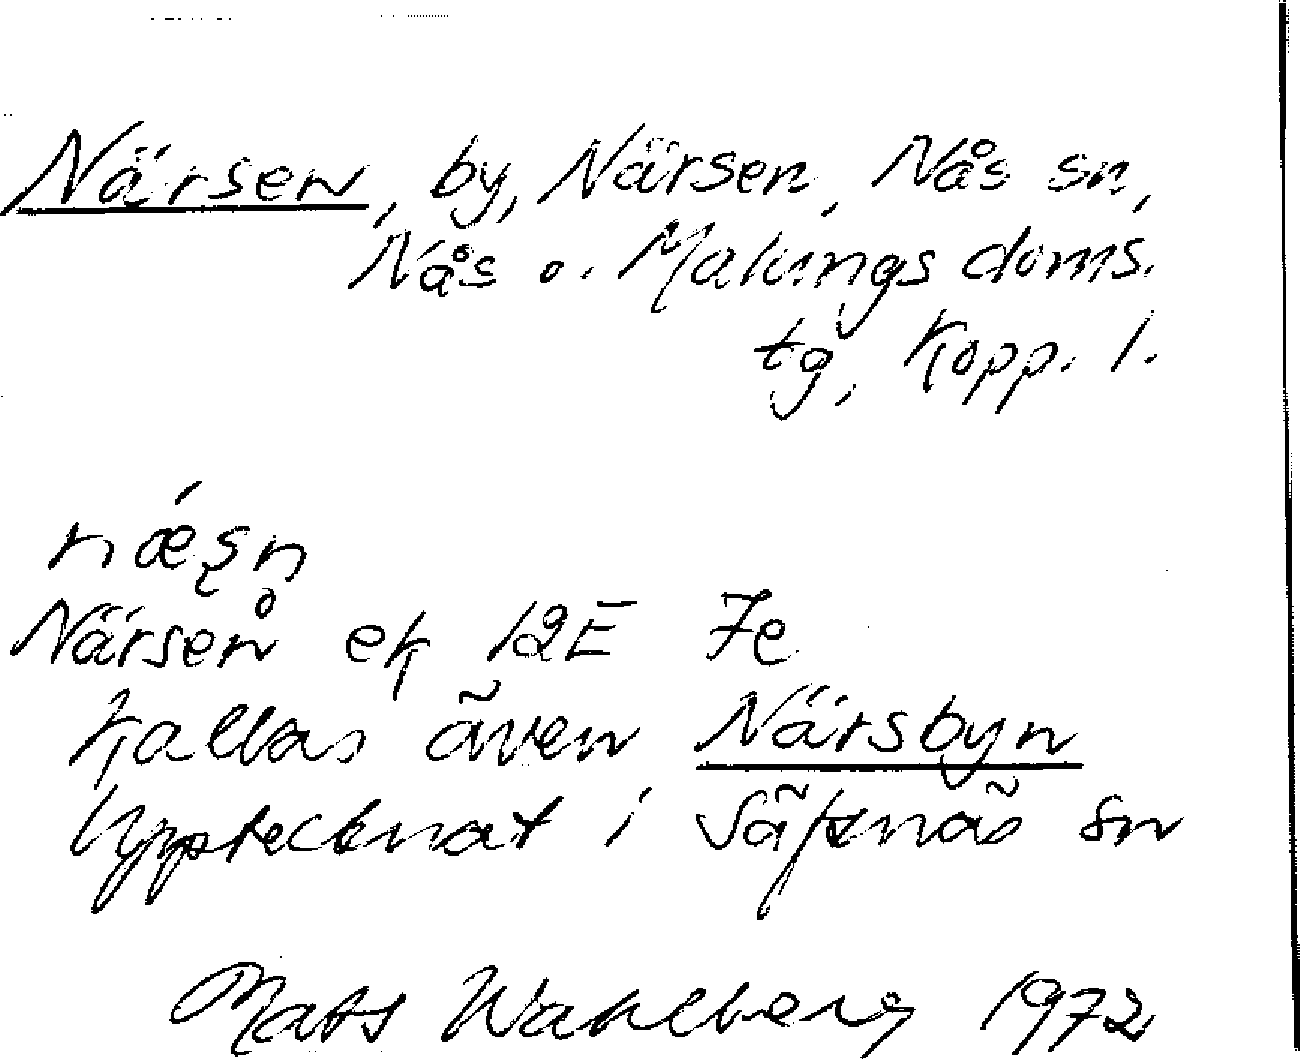 Närsen, by, Närsen, Nås sn,
Nås o. Malungs doms.
tg, Kopp. l.
nǽʂn
Närsen ek 12E 7e
Kallas även Närsbyn
Upptecknat i Säfsnäs sn
Mats Wahlberg 1972